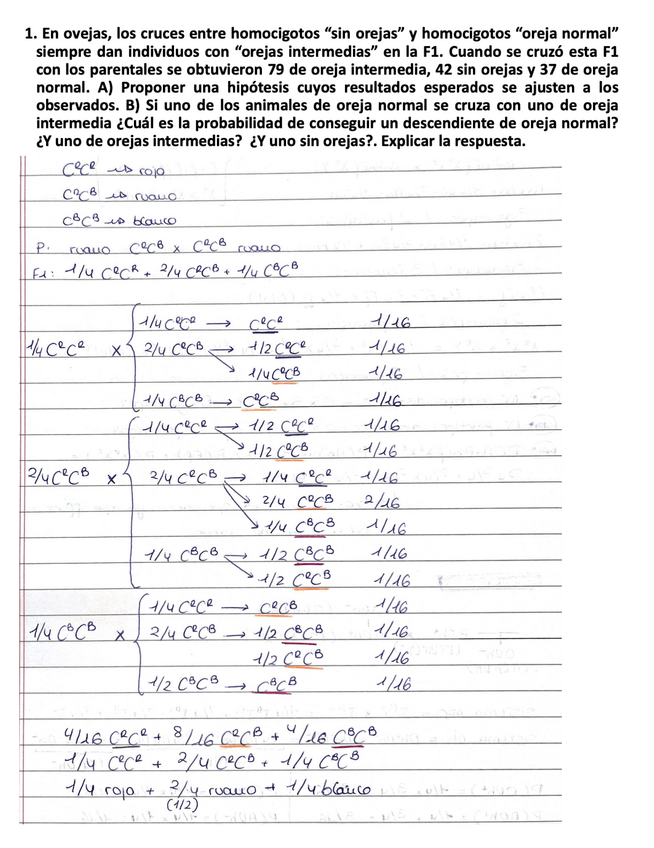 1. En ovejas, los cruces entre homocigotos “sin orejas” y homocigotos “oreja normal”
siempre dan individuos con “orejas intermedias” en la F1. Cuando se cruzó esta F1
con los parentales se obtuvieron 79 de oreja intermedia, 42 sin orejas y 37 de oreja
normal. A) Proponer una hipótesis cuyos resultados esperados se ajusten a los
observados. B) Si uno de los animales de oreja normal se cruza con uno de oreja
intermedia ¿Cuál es la probabilidad de conseguir un descendiente de oreja normal?
¿Y uno de orejas intermedias? ¿Y uno sin orejas?. Explicar la respuesta.
CᴿCᴿ → rojo
CᴿCᴮ → ruano
CᴮCᴮ → blanco
P: ruano CᴿCᴮ x CᴿCᴮ ruano
F1: 1/4 CᴿCᴿ + 2/4 CᴿCᴮ + 1/4 CᴮCᴮ
1/4 CᴿCᴿ → CᴿCᴿ 1/16
1/4 CᴿCᴿ x 2/4 CᴿCᴮ → 1/2 CᴿCᴿ 1/16
1/4 CᴿCᴮ 1/16
1/4 CᴮCᴮ → CᴿCᴮ 1/16
1/4 CᴿCᴿ → 1/2 CᴿCᴿ 1/16
1/2 CᴿCᴮ 1/16
2/4 CᴿCᴮ x 2/4 CᴿCᴮ → 1/4 CᴿCᴿ 1/16
2/4 CᴿCᴮ 2/16
1/4 CᴮCᴮ 1/16
1/4 CᴮCᴮ → 1/2 CᴮCᴮ 1/16
1/2 CᴿCᴮ 1/16
1/4 CᴿCᴿ → CᴿCᴮ 1/16
1/4 CᴮCᴮ x 2/4 CᴿCᴮ → 1/2 CᴮCᴮ 1/16
1/2 CᴿCᴮ 1/16
1/2 CᴮCᴮ → CᴮCᴮ 1/16
4/16 CᴿCᴿ + 8/16 CᴿCᴮ + 4/16 CᴮCᴮ
1/4 CᴿCᴿ + 2/4 CᴿCᴮ + 1/4 CᴮCᴮ
1/4 rojo + 2/4 ruano + 1/4 blanco
(1/2)